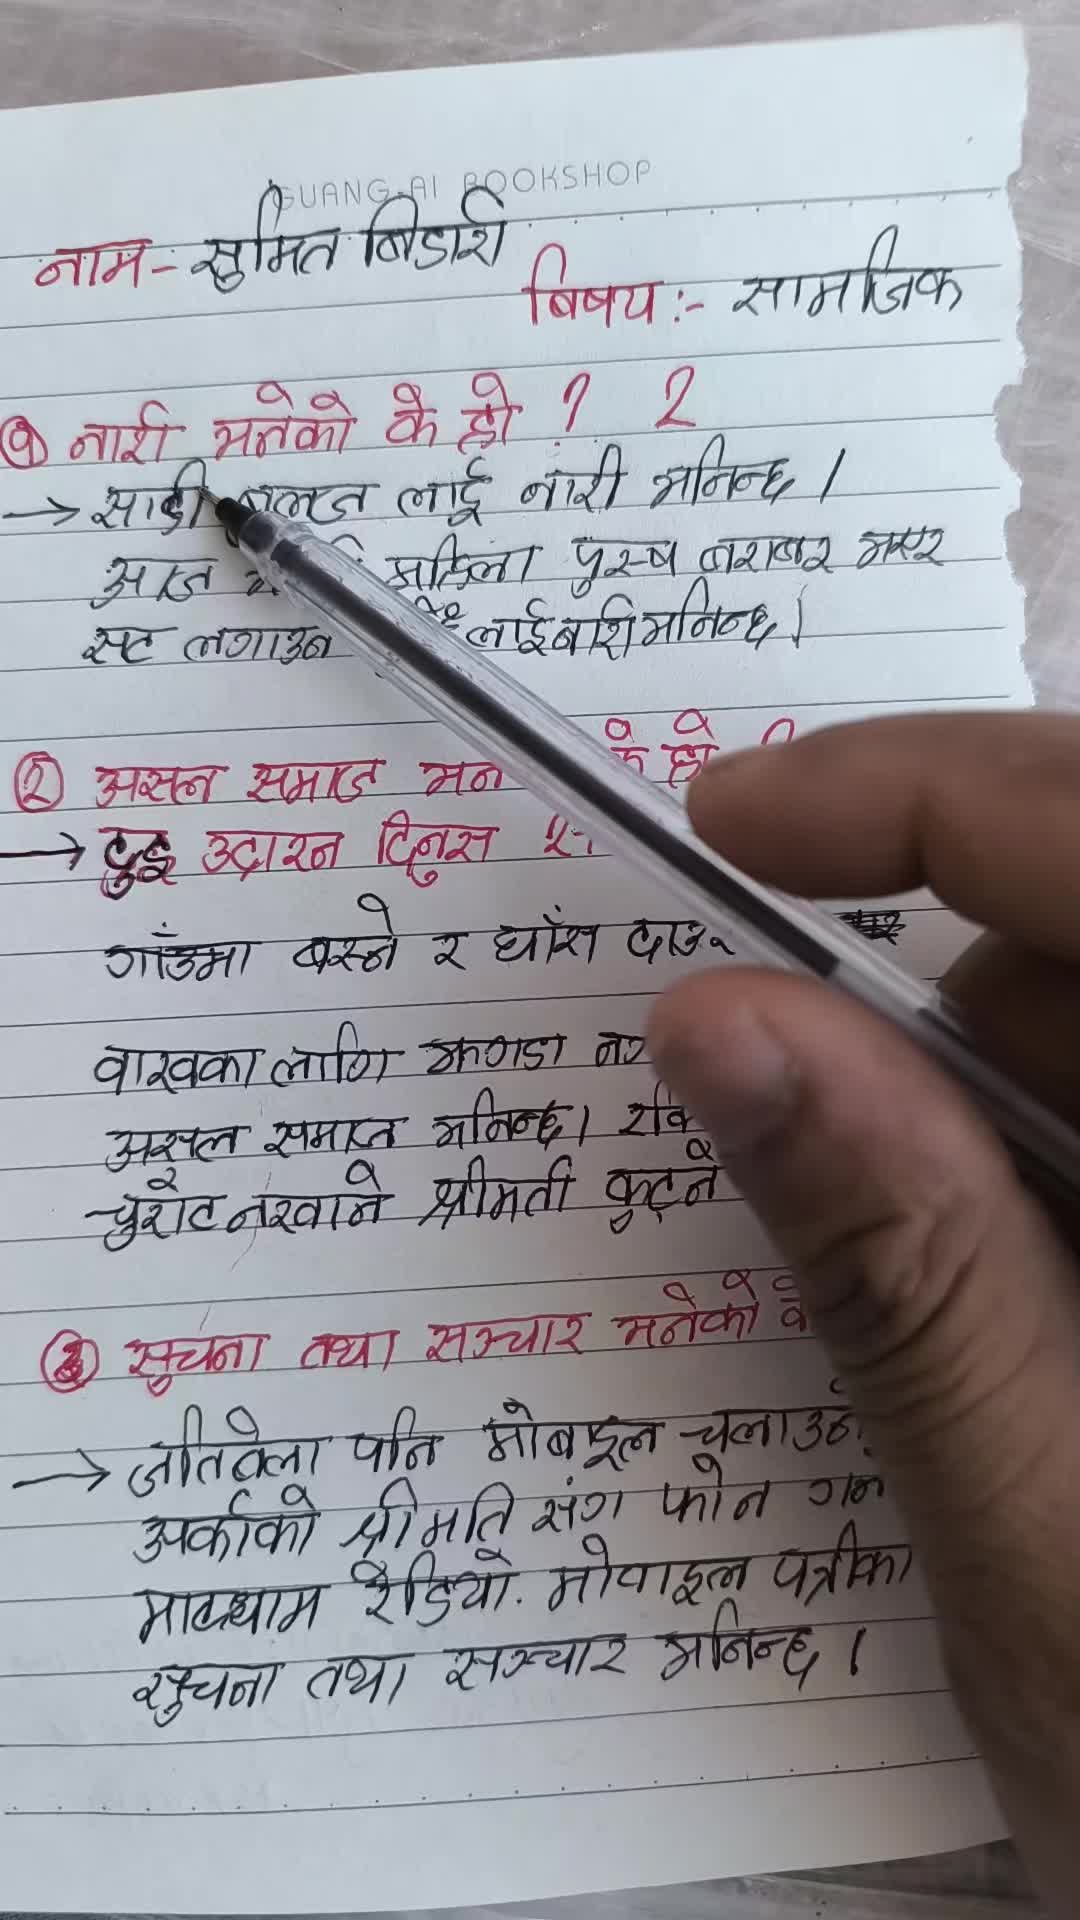 GUANG-AI BOOKSHOP
नाम- सुमित बिडारी
बिषय:- सामजिक
१ नारी भनेको के हो ? २
→ साडी ब्लउज लाई नारी भनिन्छ।
आज महिला पुरुष बराबर भएर
सट लगाउन लाई बशि भनिन्छ।
२ असल समाज भन के हो
→ दुइ उदारन दिनुस
गाँउमा बस्ने र घाँस दाउ
वाख्रका लागि झगडा
असल समाज भनिन्छ। रक्सि
चुरोट नखाने श्रीमती कुट्ने
३ सुचना तथा सञ्चार भनेको के
→ जतिवेला पनि मोबाइल चलाउने
अर्काको श्रीमति संग फोन गर्न
माध्याम रेडियो. मोवाइल पत्रीका
सुचना तथा सञ्चार भनिन्छ।